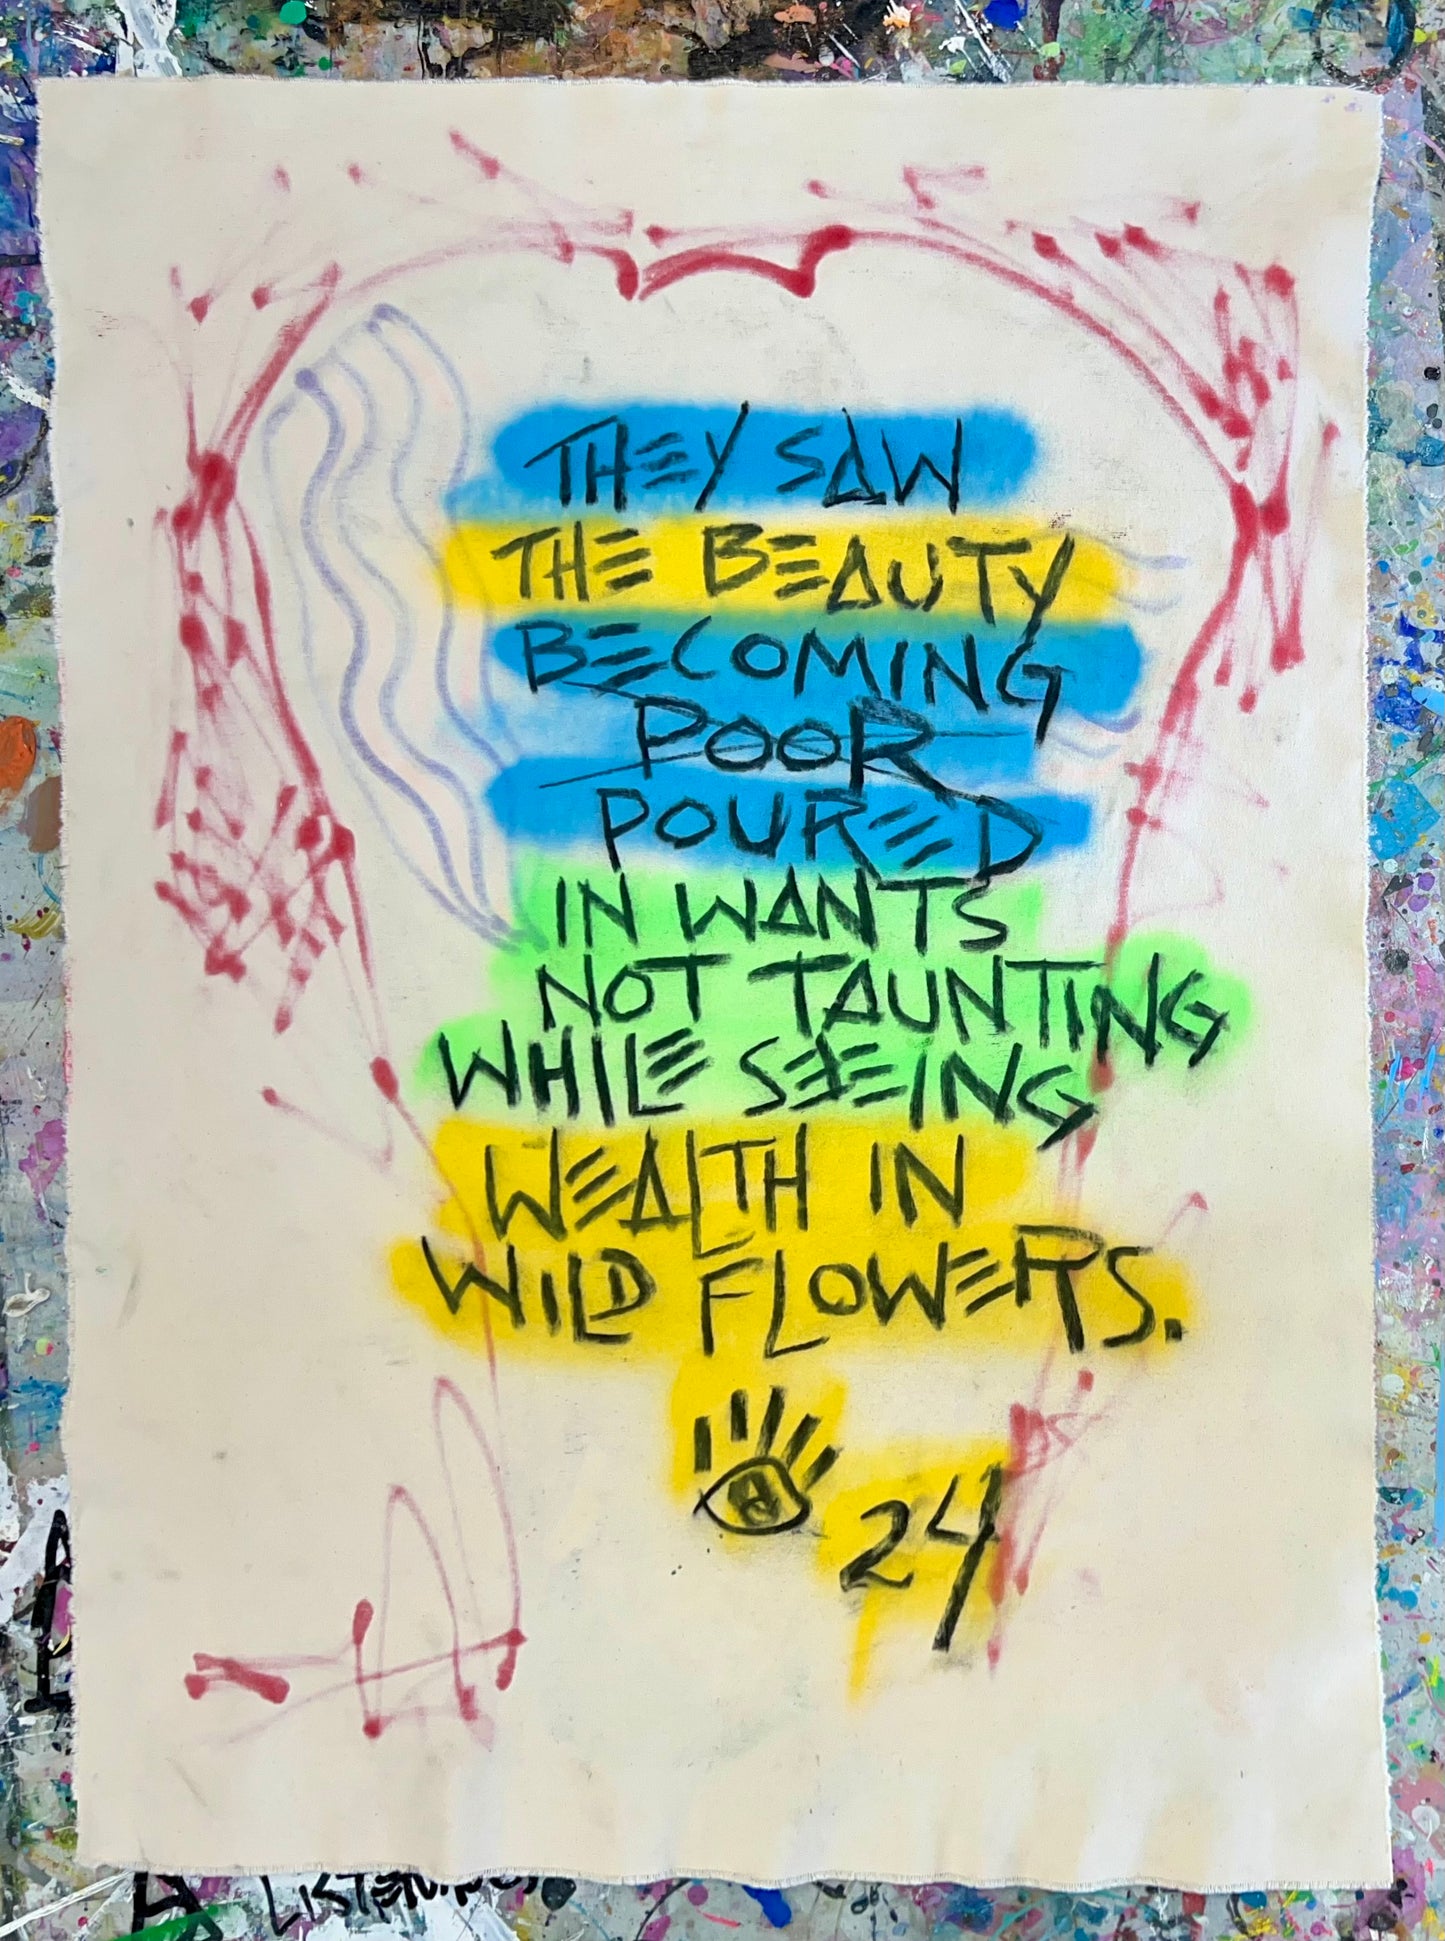 THEY SAW
THE BEAUTY
BECOMING
POOR
POURED
IN WANTS
NOT TAUNTING
WHILE SEEING
WEALTH IN
WILD FLOWERS.
24